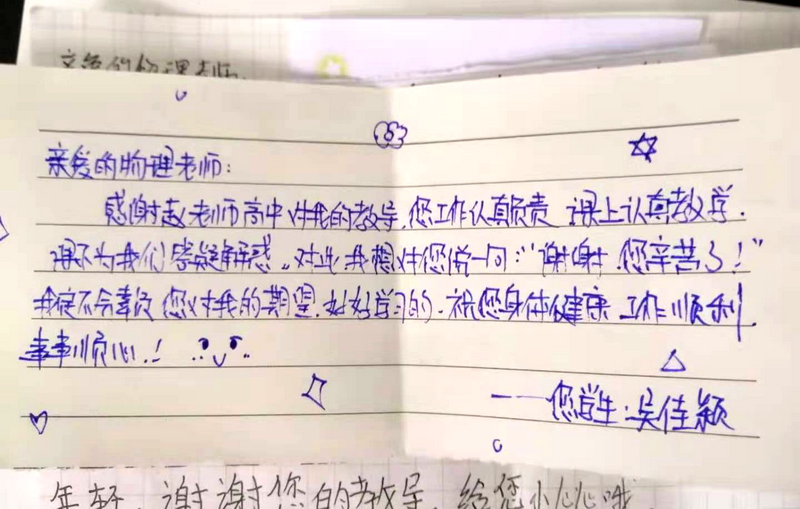 亲爱的物理老师:
亲爱的物理老师:
感谢赵老师高中对我的教导,您工作认真负责 课上认真教学.
课下为我们答疑解惑。对此我想对您说一句:"谢谢,您辛苦了!"
我定不会辜负 您对我的期望.好好学习的.祝您身体健康 工作顺利.
事事顺心.!
——您学生:吴佳颖
年轻,谢谢您的教导,给您小心心哦